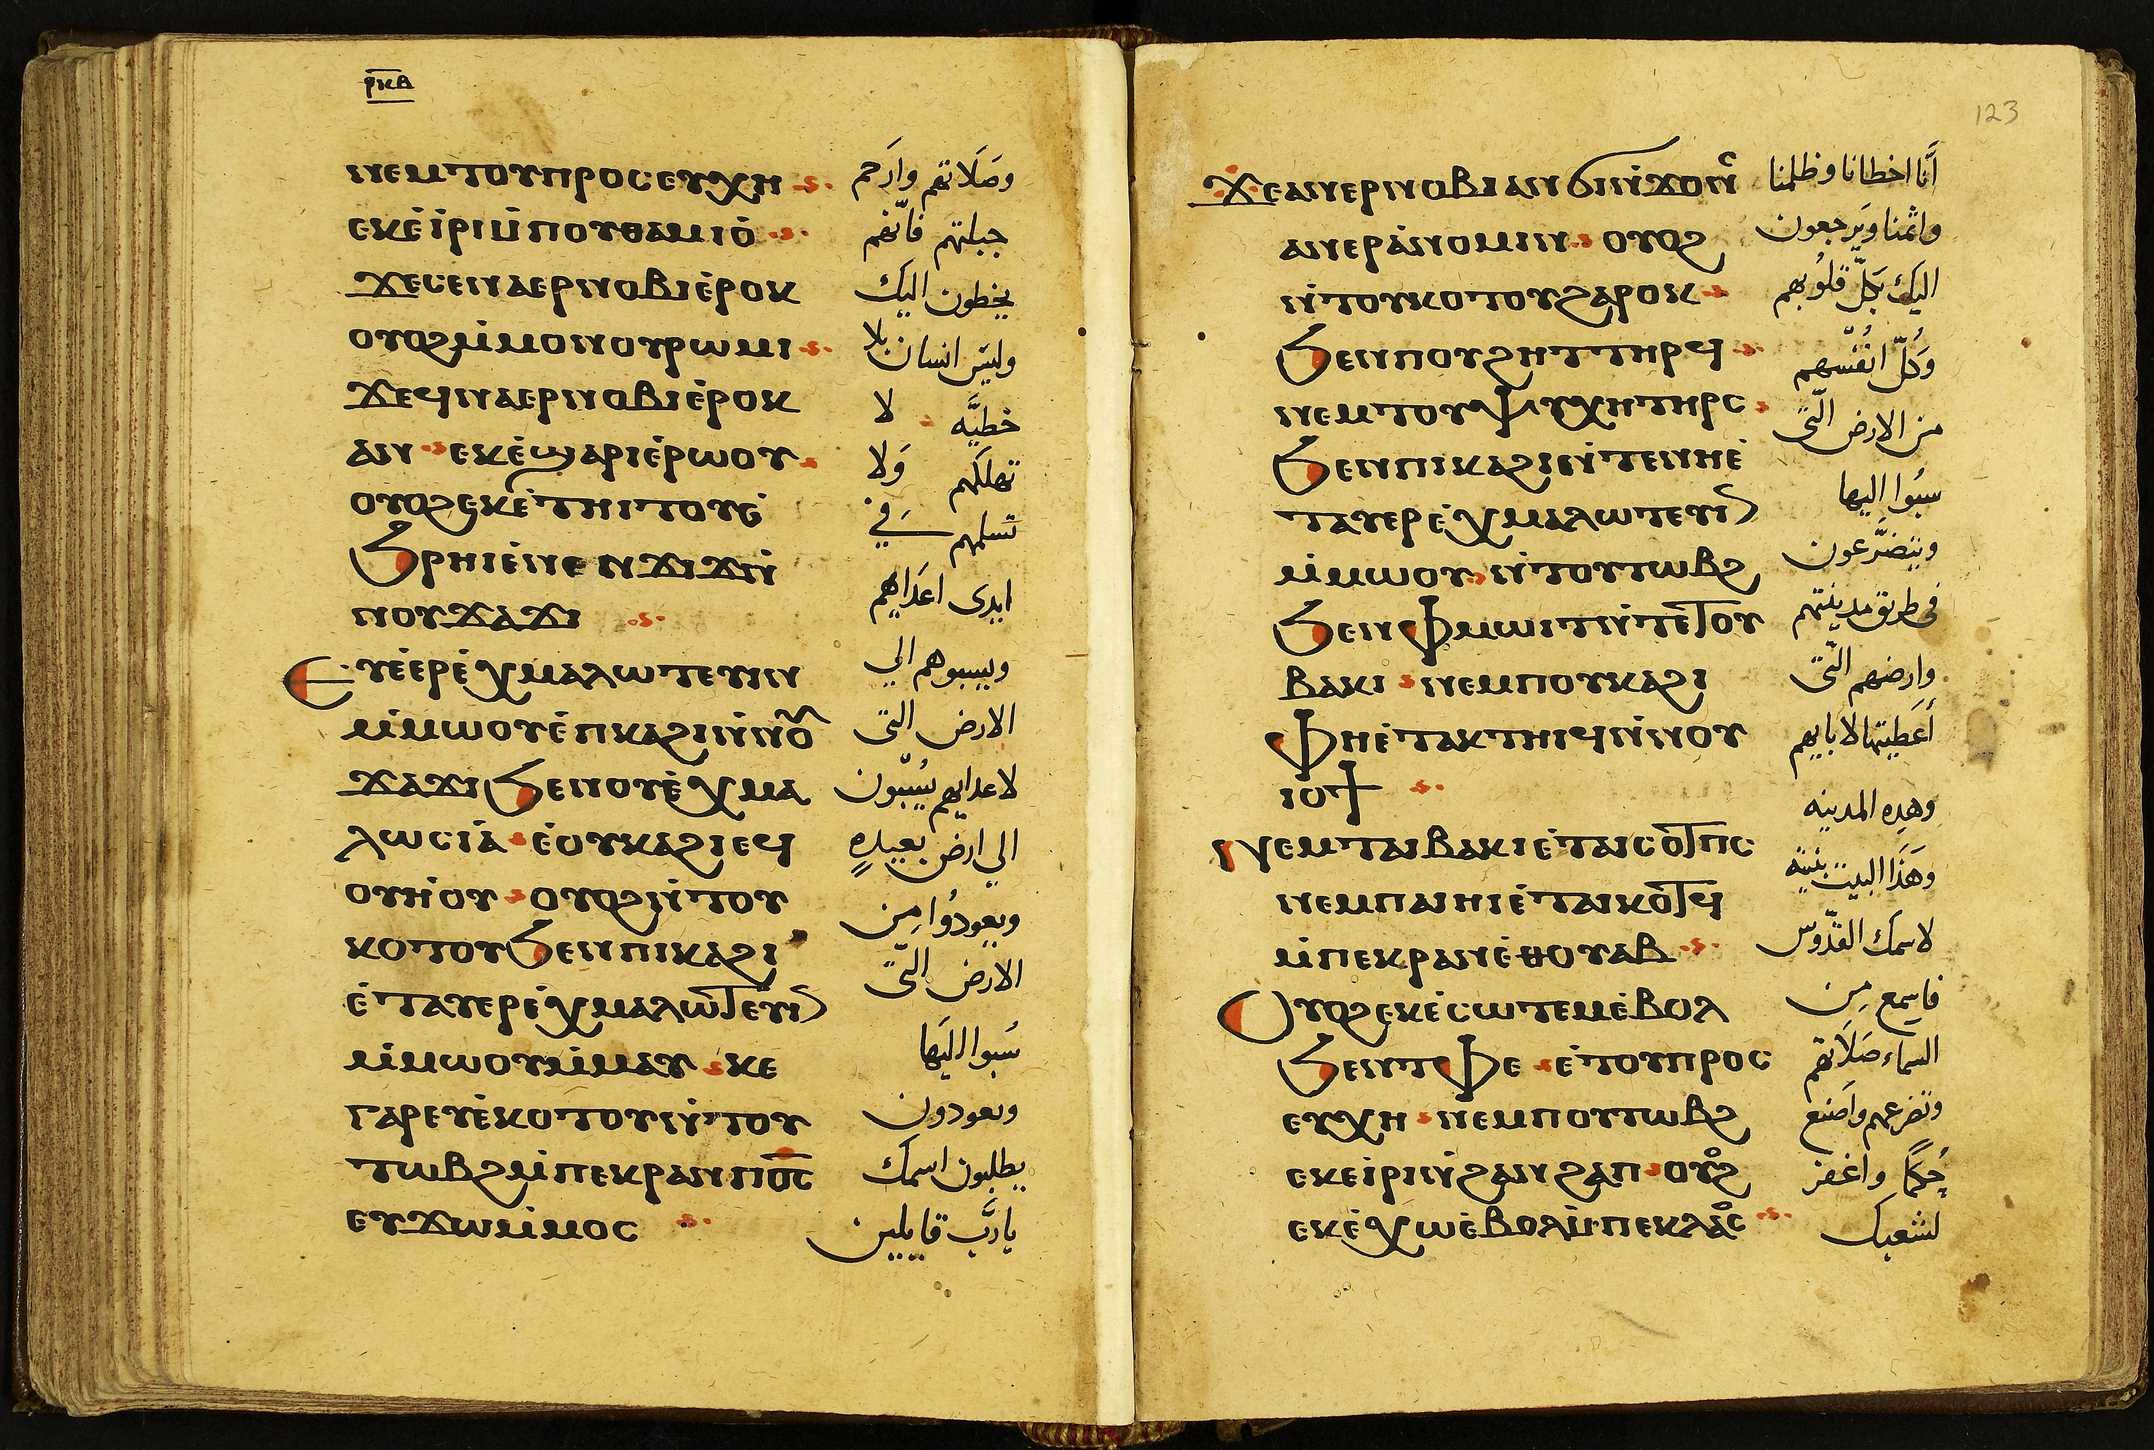 ⲣⲕⲃ
ⲛⲉⲙⲧⲟⲩⲡⲣⲟⲥⲉⲩⲭⲏ
ⲉⲕⲉ̀ⲓ̀ⲣⲓⲙ̀ⲡⲟⲩⲑⲁⲙⲓⲟ̀
ϫⲉⲥⲉⲛⲁⲉⲣⲛⲟⲃⲓⲉ̀ⲣⲟⲕ
ⲟⲩⲟϩⲙ̀ⲙⲟⲛⲟⲩⲣⲱⲙⲓ
ϫⲉϥⲛⲁⲉⲣⲛⲟⲃⲓⲉ̀ⲣⲟⲕ
ⲁⲛ ⲉⲕⲉ̀ϣⲁⲣⲓⲉ̀ⲣⲱⲟⲩ
ⲟⲩⲟϩⲉⲕⲉ̀ⲧⲏⲓⲧⲟⲩⲉ̀
ϧⲣⲏⲓⲉ̀ⲛⲉⲛϫⲓϫⲛ̀
ⲛⲟⲩϫⲁϫⲓ
Ⲉⲩⲉ̀ⲉⲣⲉ̀ⲭⲙⲁⲗⲱⲧⲉⲩⲓⲛ
ⲙ̀ⲙⲱⲟⲩⲉ̀ⲡⲕⲁϩⲓⲛ̀ⲛⲟⲩ
ϫⲁϫⲓϧⲉⲛⲟⲩⲉ̀ⲭⲙⲁ
ⲗⲱⲥⲓⲁ̀ ⲉ̀ⲟⲩⲕⲁϩⲓⲉϥ
ⲟⲩⲏ̀ⲟⲩ ⲟⲩⲟϩⲛ̀ⲧⲟⲩ
ⲕⲟⲧⲟⲩϧⲉⲛⲡⲓⲕⲁϩⲓ
ⲉ̀ⲧⲁⲩⲉⲣⲉ̀ⲭⲙⲁⲗⲱⲧⲉⲩⲓⲛ
ⲙ̀ⲙⲱⲟⲩⲙ̀ⲙⲁⲩ ⲕⲉ
ⲅⲁⲣⲉⲩⲉ̀ⲕⲟⲧⲟⲩⲛ̀ⲧⲟⲩ
ⲧⲱⲃϩⲙ̀ⲡⲉⲕⲣⲁⲛⲡⲟ̅ⲥ̅
ⲉⲩϫⲱⲙ̀ⲙⲟⲥ
وصَلَاتهم وارَحم
جبلتهم فانّهم
يخطون اليك
وليَس انسان بلا
خطيَّه لا
تهلكهم وَلا
تسلمهم في
ايدى اعدَايهم
ويسبوهم الي
الارض التى
لاعدايهم يُسبّون
الي ارض بعيدهٍ
ويعودُوا مِن
الارض التّى
سُبوا اليَها
ويعودون
يطلبون اسمك
يارَبّ قايلين
123
ϫⲉⲁⲛⲉⲣⲛⲟⲃⲓⲁⲛϭⲓⲛ̀ϫⲟⲛⲥ
ⲁⲛⲉⲣⲁ̀ⲛⲟⲙⲓⲛ ⲟⲩⲟϩ
ⲛ̀ⲧⲟⲩⲕⲟⲧⲟⲩϩⲁⲣⲟⲕ
ϧⲉⲛⲡⲟⲩϩⲏⲧⲧⲏⲣϥ
ⲛⲉⲙⲧⲟⲩⲯⲩⲭⲏⲧⲏⲣⲥ
ϧⲉⲛⲡⲓⲕⲁϩⲓⲛ̀ⲧⲉⲛⲏⲉ̀
ⲧⲁⲩⲉⲣⲉ̀ⲭⲙⲁⲗⲱⲧⲉⲩⲓⲛ
ⲙ̀ⲙⲱⲟⲩ ⲛ̀ⲧⲟⲩⲧⲱⲃϩ
ϧⲉⲛⲫⲙⲱⲓⲧⲛ̀ⲧⲉⲧⲟⲩ
ⲃⲁⲕⲓ ⲛⲉⲙⲡⲟⲩⲕⲁϩⲓ
ⲫⲏⲉ̀ⲧⲁⲕⲧⲏⲓϥⲛ̀ⲛⲟⲩ
ⲓⲟϯ
Ⲛⲉⲙⲧⲁⲓⲃⲁⲕⲓⲉ̀ⲧⲁⲓⲥⲟⲧⲡⲥ
ⲛⲉⲙⲡⲁⲓⲏⲓⲉ̀ⲧⲁⲓⲕⲟⲧϥ
ⲙ̀ⲡⲉⲕⲣⲁⲛⲉ̀ⲑⲟⲩⲁⲃ
Ⲟⲩⲟϩⲉⲕⲉ̀ⲥⲱⲧⲉⲙⲉ̀ⲃⲟⲗ
ϧⲉⲛⲧⲫⲉ ⲉ̀ⲧⲟⲩⲡⲣⲟⲥ
ⲉⲩⲭⲏ ⲛⲉⲙⲡⲟⲩⲧⲱⲃϩ
ⲉⲕⲉ̀ⲓⲣⲓⲛ̀ϩⲁⲛϩⲁⲡ ⲟⲩⲟϩ
ⲉⲕⲉ̀ⲭⲱⲉ̀ⲃⲟⲗⲙ̀ⲡⲉⲕⲗⲁⲟⲥ
أنَّا اخطانا وظلمنا
واثمنا ويَرجعون
اليك بَكلّ قلوُبهم
وَكُلّ انفُسّهم
من الارض التّى
سبُوا اليها
ويتضَّرعون
فى طريق مدينتهم
وارضهم التّى
أعَطيتها لابايهم
وهذِه المدينه
وهَذا البيت بَنيتَه
لاسمك القدّوس
فاسمع مِن
السماء صَلَاتهم
وتضرعهم واَصنع
حُكمًا واغفر
لشعبك